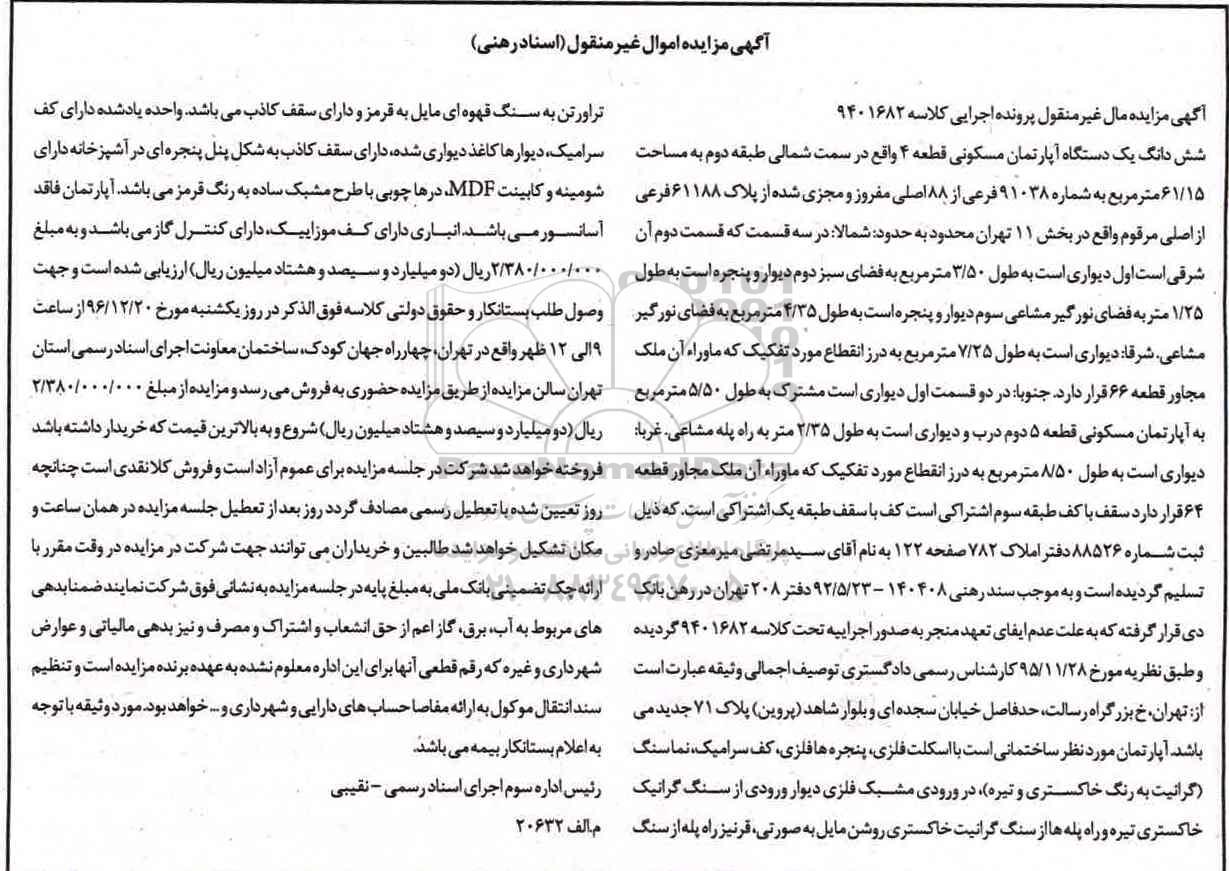 آگهی مزایده اموال غیر منقول (اسناد رهنی)
آگهی مزایده مال غیر منقول پرونده اجرایی کلاسه ۹۴۰۱۶۸۲
شش دانگ یک دستگاه آپارتمان مسکونی قطعه ۴ واقع در سمت شمالی طبقه دوم به مساحت
۶۱/۱۵ متر مربع به شماره ۹۱۰۳۸ فرعی از ۸۸ اصلی مفروز و مجزی شده از پلاک ۶۱۱۸۸ فرعی
از اصلی مرقوم واقع در بخش ۱۱ تهران محدود به حدود: شمالا: در سه قسمت که قسمت دوم آن
شرقی است اول دیواری است به طول ۳/۵۰ متر مربع به فضای سبز دوم دیوار و پنجره است به طول
۱/۲۵ متر به فضای نور گیر مشاعی سوم دیوار و پنجره است به طول ۴/۳۵ متر مربع به فضای نور گیر
مشاعی. شرقا: دیواری است به طول ۷/۲۵ متر مربع به درز انقطاع مورد تفکیک که ماوراء آن ملک
مجاور قطعه ۶۶ قرار دارد. جنوبا: در دو قسمت اول دیواری است مشترک به طول ۵/۵۰ متر مربع
به آپارتمان مسکونی قطعه ۵ دوم درب و دیواری است به طول ۲/۳۵ متر به راه پله مشاعی. غربا:
دیواری است به طول ۸/۵۰ متر مربع به درز انقطاع مورد تفکیک که ماوراء آن ملک مجاور قطعه
۶۴ قرار دارد سقف با کف طبقه سوم اشتراکی است کف با سقف طبقه یک اشتراکی است. که ذیل
ثبت شماره ۸۸۵۲۶ دفتر املاک ۷۸۲ صفحه ۱۲۲ به نام آقای سید مرتضی میرمعزی صادر و
تسلیم گردیده است و به موجب سند رهنی ۱۴۰۴۰۸ – ۹۲/۵/۲۳ دفتر ۲۰۸ تهران در رهن بانک
دی قرار گرفته که به علت عدم ایفای تعهد منجر به صدور اجراییه تحت کلاسه ۹۴۰۱۶۸۲ گردیده
و طبق نظریه مورخ ۹۵/۱۱/۲۸ کارشناس رسمی دادگستری توصیف اجمالی وثیقه عبارت است
از: تهران، خ بزرگراه رسالت، حدفاصل خیابان سجده ای و بلوار شاهد (پروین) پلاک ۷۱ جدید می
باشد. آپارتمان مورد نظر ساختمانی است با اسکلت فلزی، پنجره ها فلزی، کف سرامیک، نما سنگ
(گرانیت به رنگ خاکستری و تیره)، در ورودی مشبک فلزی دیوار ورودی از سنگ گرانیک
خاکستری تیره و راه پله ها از سنگ گرانیت خاکستری روشن مایل به صورتی، قرنیز راه پله از سنگ
تراورتن به سنگ قهوه ای مایل به قرمز و دارای سقف کاذب می باشد. واحده یادشده دارای کف
سرامیک، دیوارها کاغذ دیواری شده، دارای سقف کاذب به شکل پنل پنجره ای در آشپزخانه دارای
شومینه و کابینت MDF، درها چوبی با طرح مشبک ساده به رنگ قرمز می باشد. آپارتمان فاقد
آسانسور می باشد. انباری دارای کف موزاییک، دارای کنترل گاز می باشد و به مبلغ
۲/۳۸۰/۰۰۰/۰۰۰ ریال (دو میلیارد و سیصد و هشتاد میلیون ریال) ارزیابی شده است و جهت
وصول طلب بستانکار و حقوق دولتی کلاسه فوق الذکر در روز یکشنبه مورخ ۹۶/۱۲/۲۰ از ساعت
۹ الی ۱۲ ظهر واقع در تهران، چهارراه جهان کودک، ساختمان معاونت اجرای اسناد رسمی استان
تهران سالن مزایده از طریق مزایده حضوری به فروش می رسد و مزایده از مبلغ ۲/۳۸۰/۰۰۰/۰۰۰
ریال (دو میلیارد و سیصد و هشتاد میلیون ریال) شروع و به بالاترین قیمت که خریدار داشته باشد
فروخته خواهد شد شرکت در جلسه مزایده برای عموم آزاد است و فروش کلا نقدی است چنانچه
روز تعیین شده با تعطیل رسمی مصادف گردد روز بعد از تعطیل جلسه مزایده در همان ساعت و
مکان تشکیل خواهد شد طالبین و خریداران می توانند جهت شرکت در مزایده در وقت مقرر با
ارائه چک تضمینی بانک ملی به مبلغ پایه در جلسه مزایده به نشانی فوق شرکت نمایند ضمنا بدهی
های مربوط به آب، برق، گاز اعم از حق انشعاب و اشتراک و مصرف و نیز بدهی مالیاتی و عوارض
شهرداری و غیره که رقم قطعی آنها برای این اداره معلوم نشده به عهده برنده مزایده است و تنظیم
سند انتقال موکول به ارائه مفاصا حساب های دارایی و شهرداری و ... خواهد بود. مورد وثیقه با توجه
به اعلام بستانکار بیمه می باشد.
رئیس اداره سوم اجرای اسناد رسمی – نقیبی
م.الف ۲۰۶۳۲
ParsNamadData
۰۲۱-۸۸۳۴۹۶۷۰-۵